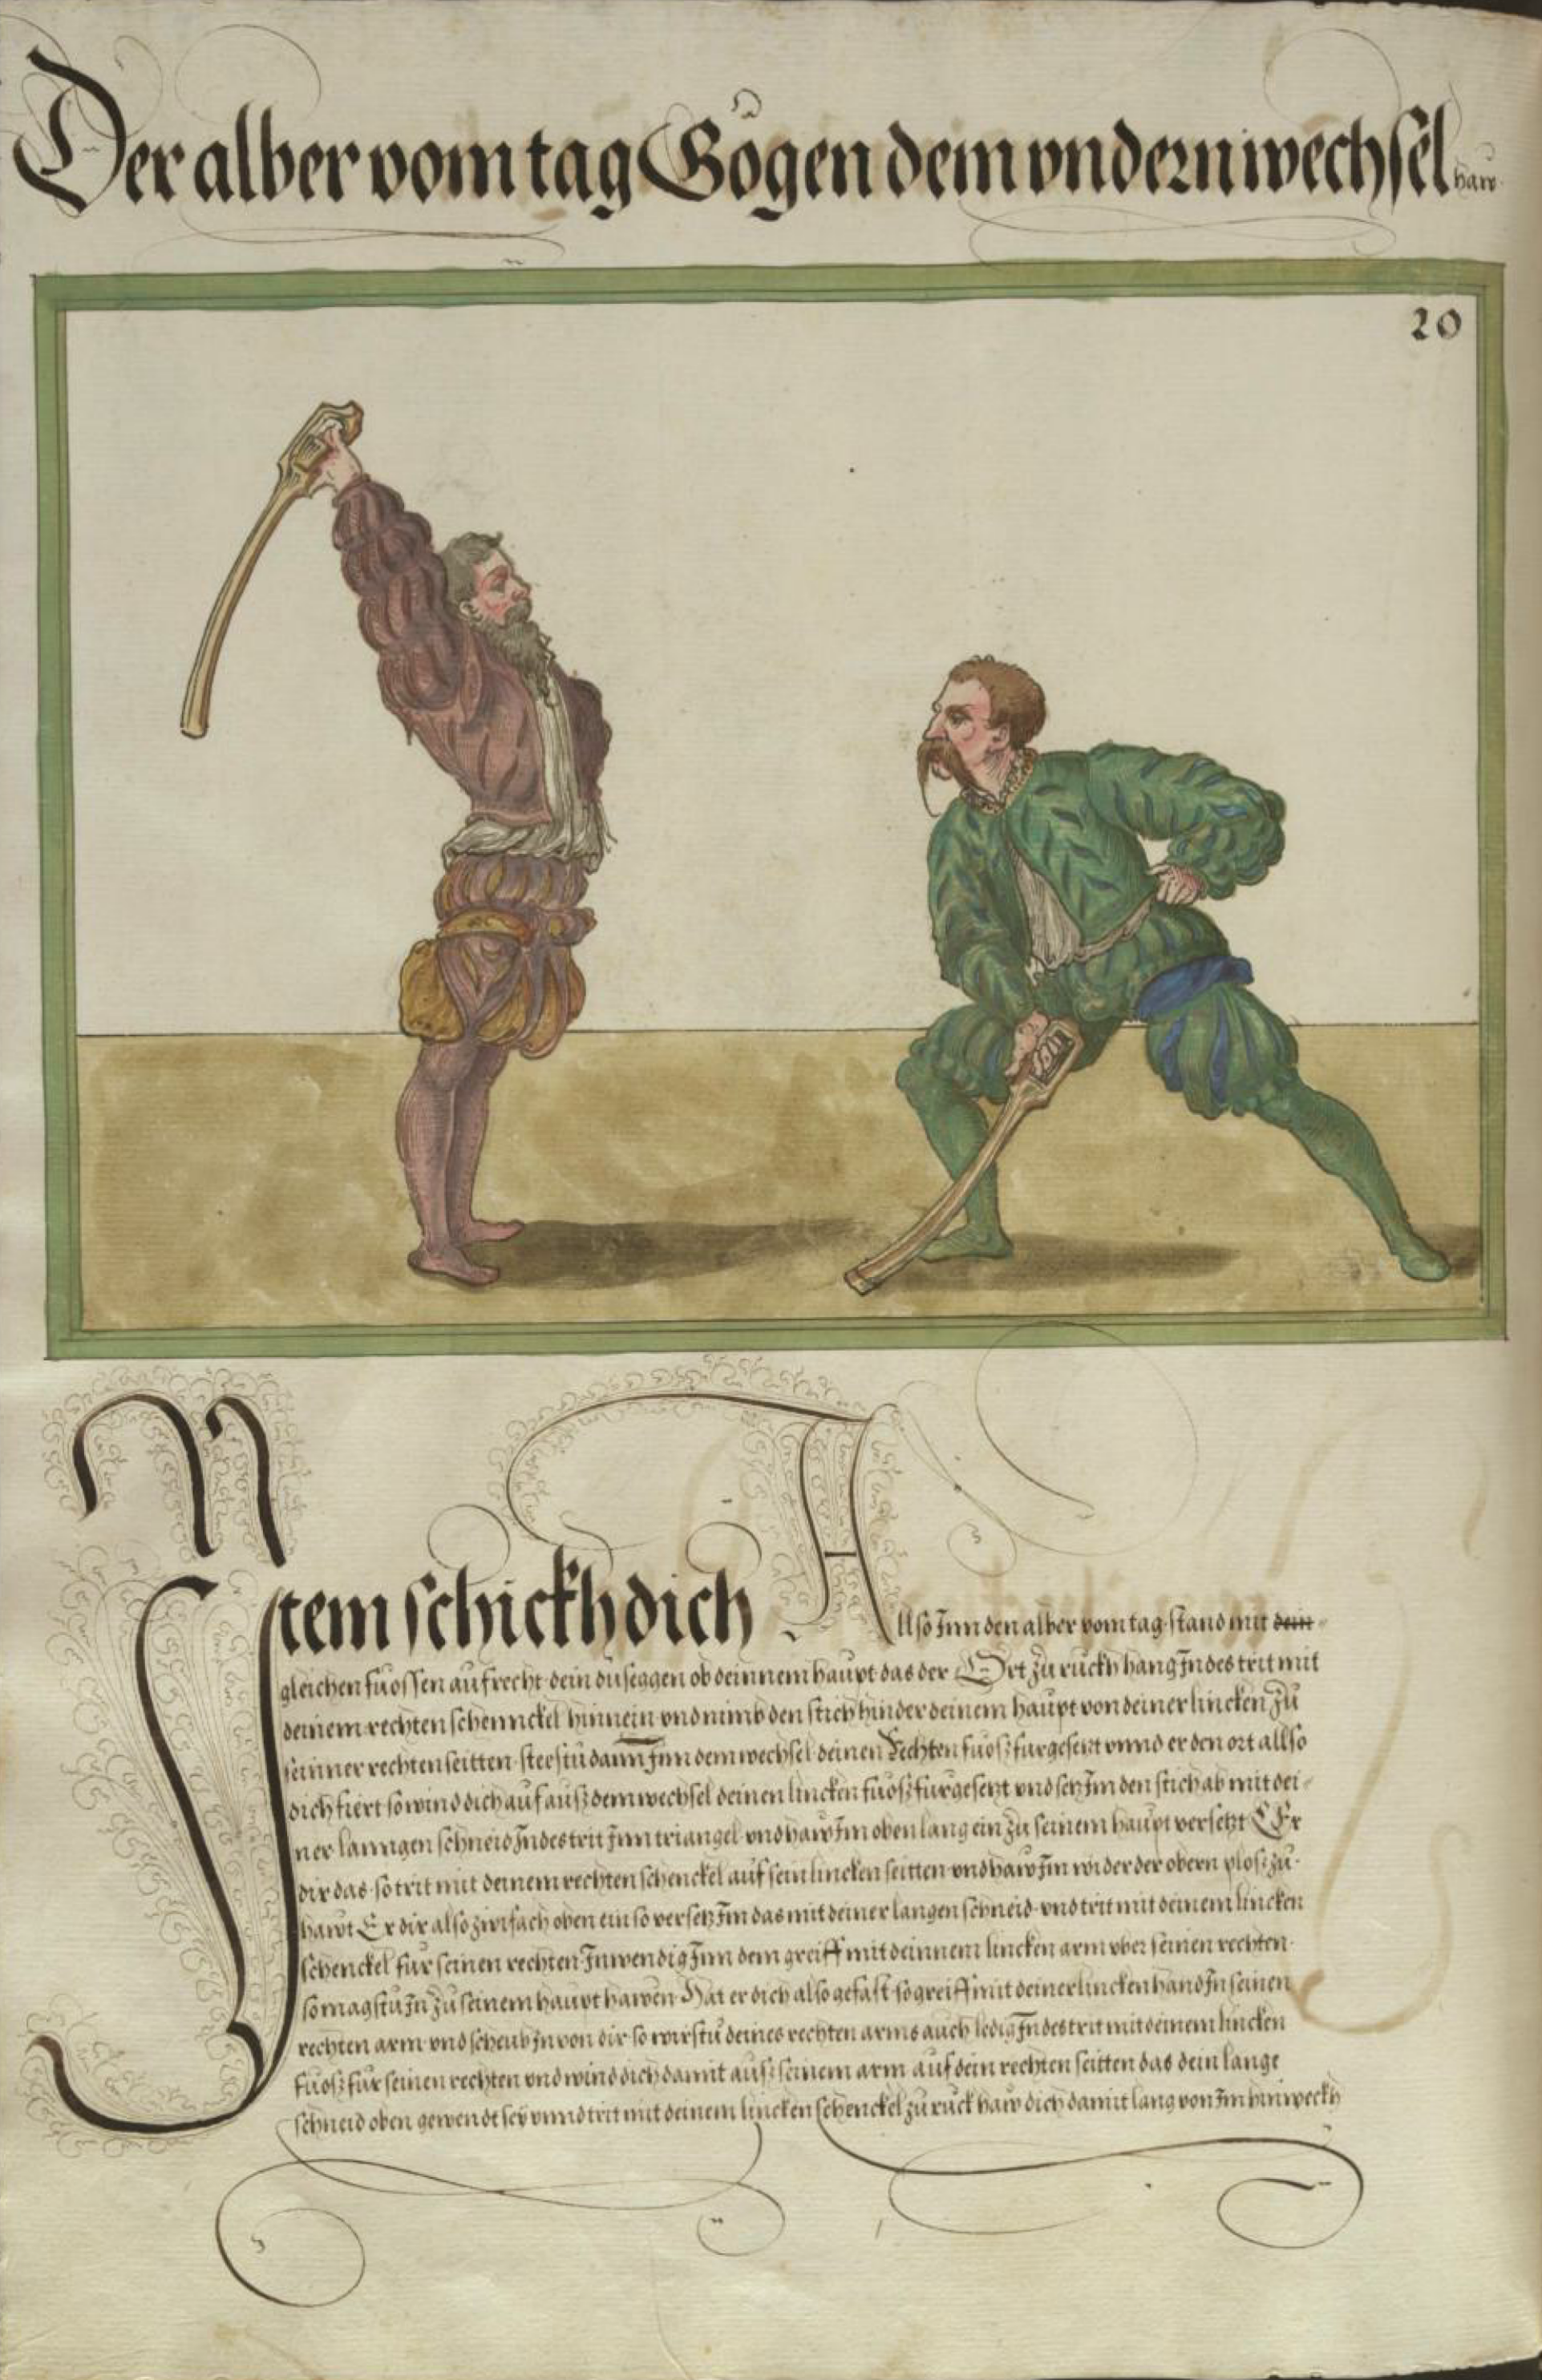 Der alber vom tag Gögen dem vndern wechsel haw
20
Item schickh dich Allso Jnn den alber vom tag stand mit dein
gleichen fuossen aufrecht dein duseggen ob deinnem haupt das der Ort zu ruckh hang Jndes trit mit
deinem rechten schennckel hinnein vnd nimb den stich hinder deinem haupt von deiner lincken zu
seinner rechten seitten steestu dann Jnn dem wechsel deinen Rechten fuosz furgesetzt vnnd er den ort allso
dich fiert so wind dich auf ausz dem wechsel deinen lincken fuosz furgesetzt vnd setz Jm den stich ab mit dei
ner lanngen schneid Jndes trit Jnn triangel vnd haw Jm oben lang ein zu seinem haupt versetzt Er
dir das so trit mit deinem rechten schenckel auf sein lincken seitten vnd haw Jm wider der obern plosz zu
hawt Er dir also zwifach oben ein so versetz Jm das mit deiner langen schneid vnd trit mit deinem lincken
schenckel fur seinen rechten Jnwendig Jnn dem greiff mit deinnem lincken arm vber seinen rechten
so magstu Jn zu seinem haupt hawen Hat er dich also gefast so greiff mit deiner lincken hand Jn seinen
rechten arm vnd scheub Jn von dir so wirstu deines rechten arms auch ledig Jndes trit mit deinem lincken
fuosz fur seinen rechten vnd wind dich damit ausz seinem arm auf dein rechten seitten das dein lange
schneid oben gewendt sey vnnd trit mit deinem lincken schenckel zu ruck haw dich damit lang von Jm hinweckh